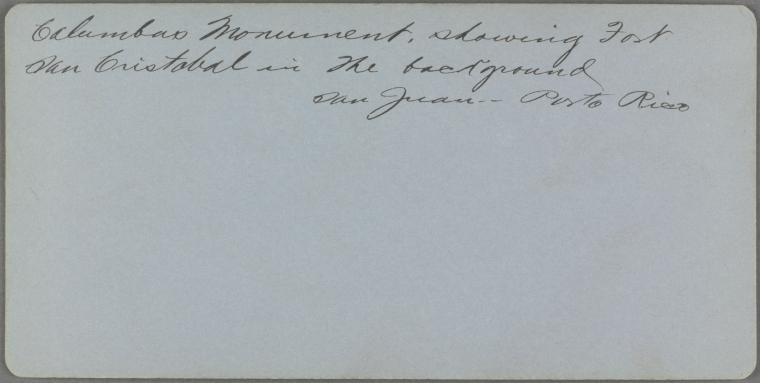 Columbus Monument, showing Fort
San Cristobal in the background
San Juan -- Porto Rico